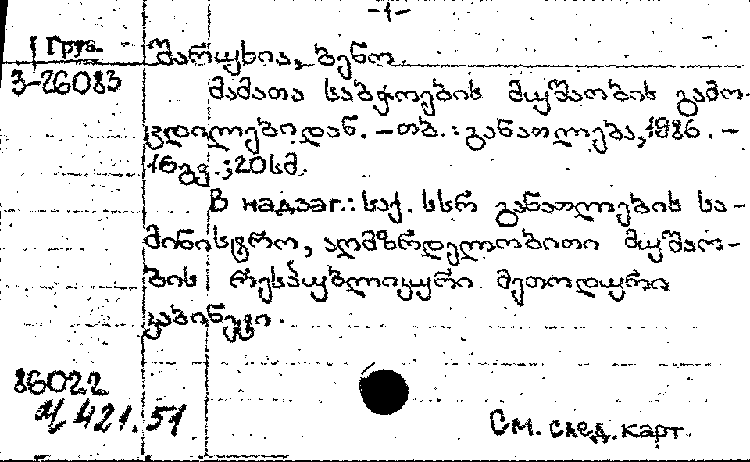 -1-
Груз.
შარუხია, ბენო.
3-26083
მამათა საბჭოების მუშაობის გამო-
ცდილებიდან. - თბ.: განათლება, 1986. -
16 გვ.; 20 სმ.
В надзаг.: საქ. სსრ განათლების სა-
მინისტრო, აღმზრდელობითი მუშაო-
ბის რესპუბლიკური მეთოდური
კაბინეტი.
86022
Ч 421.51
См. след. карт.